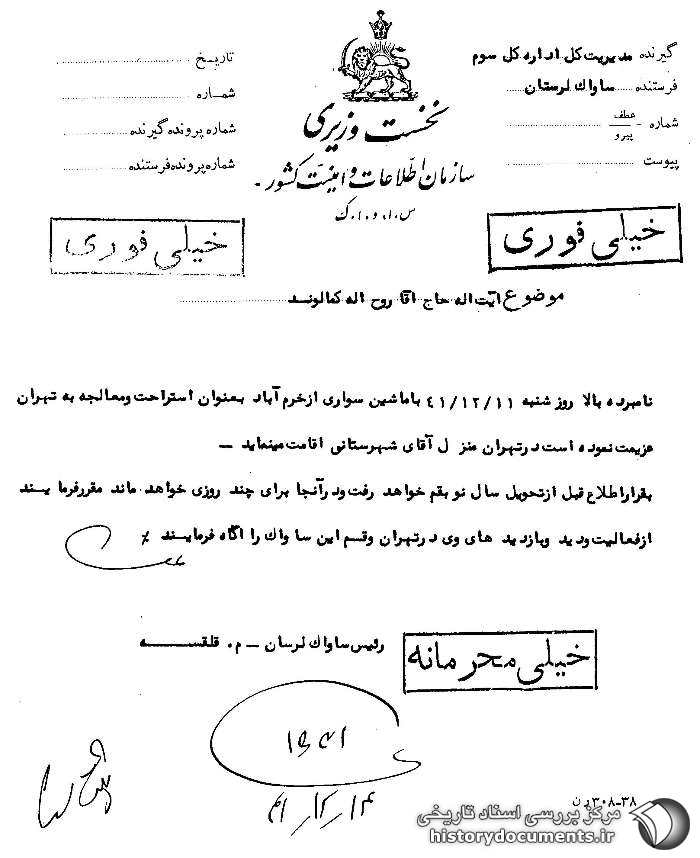 گیرنده مدیریت کل اداره کل سوم
فرستنده ساواک لرستان
شماره عطف پیرو
پیوست
نخست وزیری
سازمان اطلاعات و امنیت کشور
س.ا.و.ا.ک
تاریخ
شماره
شماره پرونده گیرنده
شماره پرونده فرستنده
خیلی فوری
خیلی فوری
موضوع آیت اله حاج آقا روح اله کمالوند
نامبرده بالا روز شنبه ۴۱/۱۲/۱۱ با ماشین سواری از خرم آباد بعنوان استراحت و معالجه به تهران
عزیمت نموده است در تهران منزل آقای شهرستانی اقامت مینماید –
بقرار اطلاع قبل از تحویل سال نو بقم خواهد رفت و در آنجا برای چند روزی خواهد ماند مقرر فرمایند
از فعالیت و دید و بازدید های وی در تهران و قسم این ساواک را آگاه فرمایند
رئیس ساواک لرسان – م. قلقسه
خیلی محرمانه
۳۰۸-۳۸ ن
مرکز بررسی اسناد تاریخی
historydocuments.ir